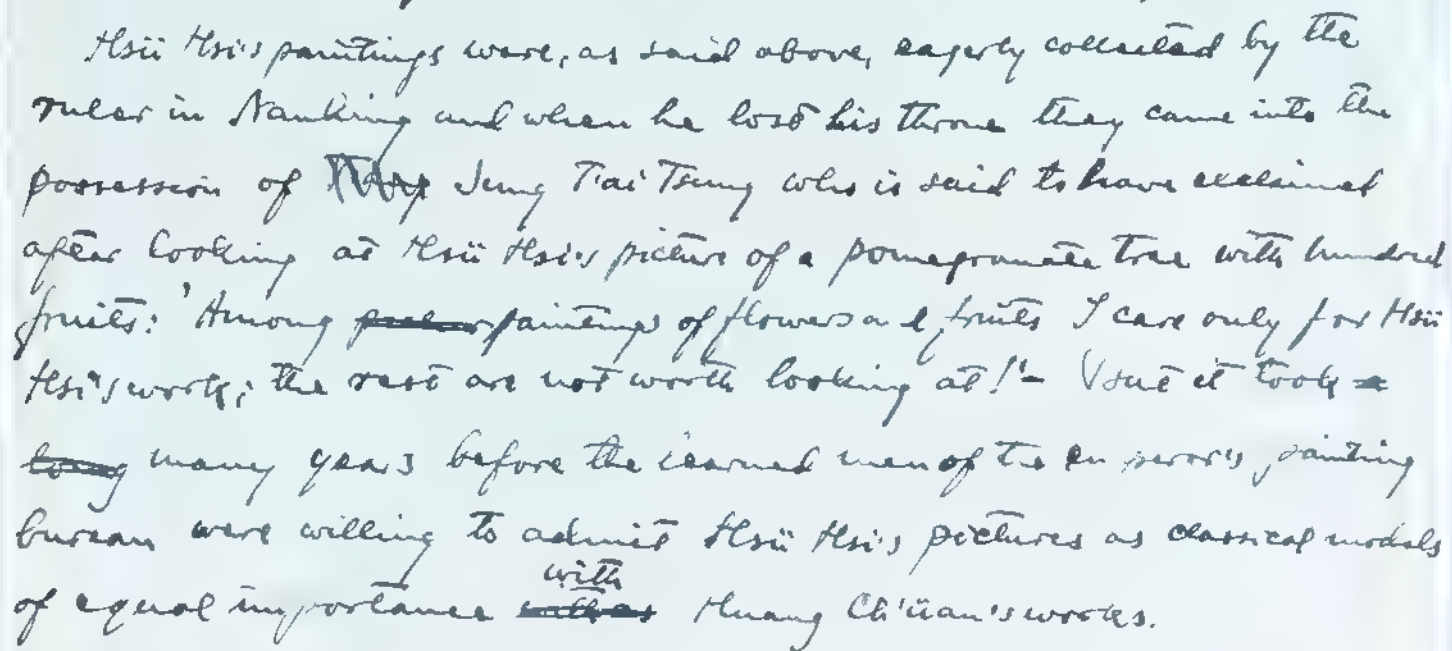 Hsü Hsi's paintings were, as said above, eagerly collected by the
ruler in Nanking and when he lost his throne they came into the
possession of Sung T'ai Tsung who is said to have exclaimed
after looking at Hsü Hsi's picture of a pomegranate tree with hundred
fruits: 'Among paintings of flowers and fruits I care only for Hsü
Hsi's works; the rest are not worth looking at!' - But it took
many years before the learned men of the emperor's painting
bureau were willing to admit Hsü Hsi's pictures as classical models
of equal importance with Huang Ch'üan's works.